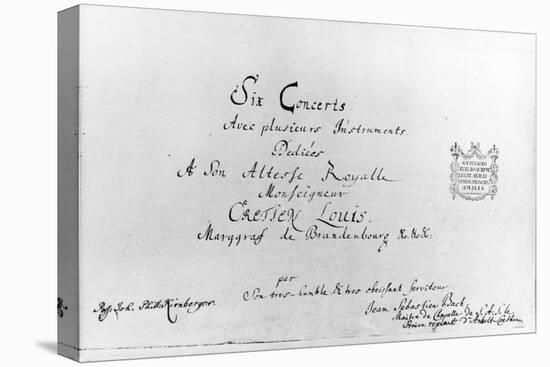 Six Concerts
Avec plusieurs Instruments.
Dediées
A Son Altesse Royalle
Monseigneur
CRETIEN Louis.
Marggraf de Brandenbourg &c.&c.&c.
par
Son tres-humble & tres obeissant serviteur
Jean Sebastien Bach,
Maitre de Chapelle de S.A.S. le
Prince regnant d'Anhalt-Coethen.
Poss: Joh. Phil. Kirnberger.
AMALIA